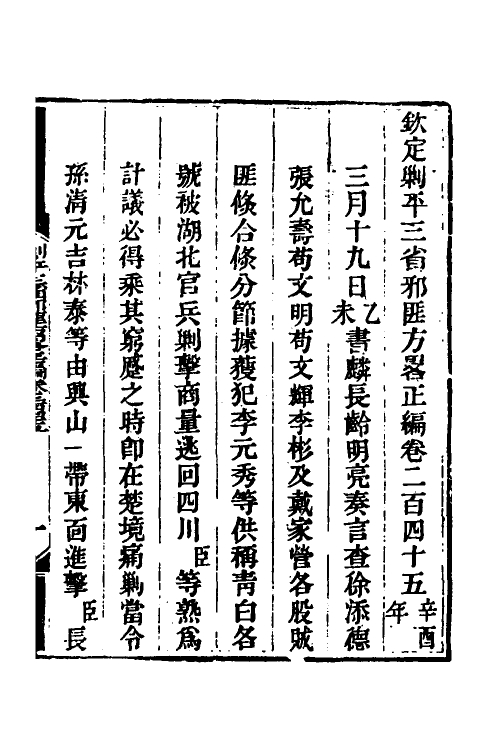 欽定剿平三省邪匪方畧正編卷二百四十五辛酉年
三月十九日乙未書麟長齡明亮奏言查徐添德
張允壽茍文明茍文輝李彬及戴家營各股賊
匪倏合倏分節據獲犯李元秀等供稱靑白各
號被湖北官兵剿擊商量逃回四川臣等熟爲
計議必得乘其窮蹙之時卽在楚境痛剿當令
孫清元吉林泰等由興山一帶東面進擊臣長